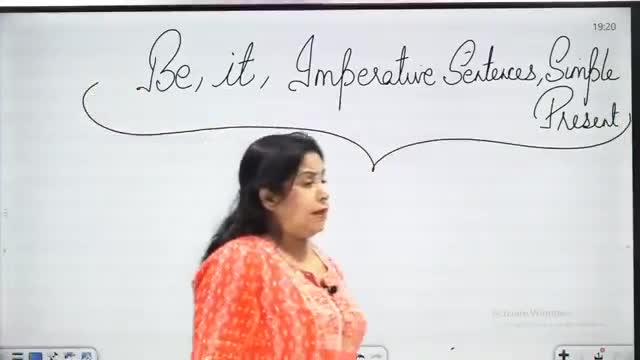 19:20
Be, it, Imperative Sentences, Simple
Present
Activate Windows